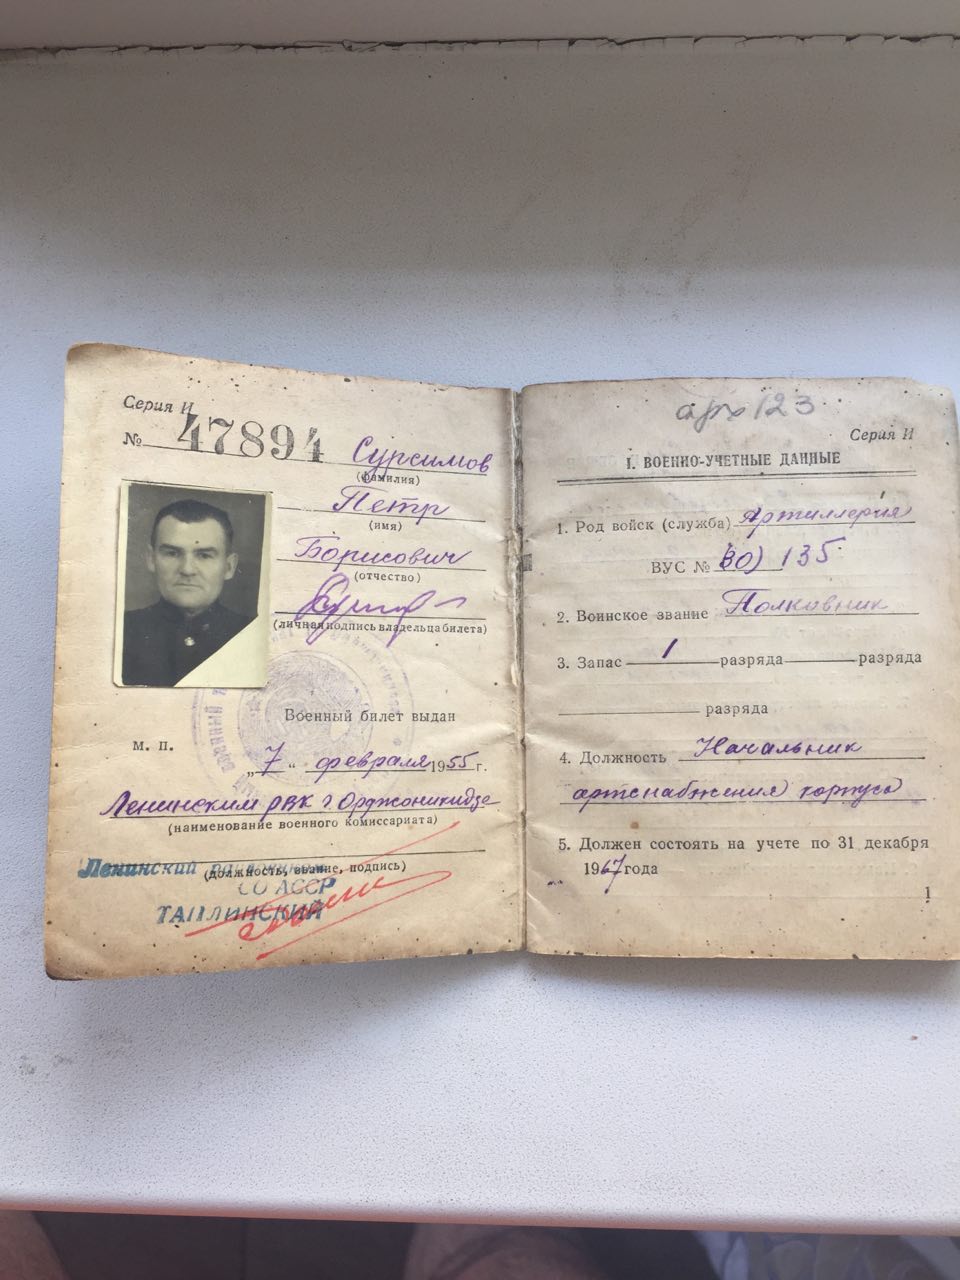 Серия И
№ 47894
Сурсимов
(фамилия)
Петр
(имя)
Борисович
(отчество)
(личная подпись владельца билета)
Военный билет выдан
М. П.
„7“ февраля 1955 г.
Ленинским РВК г. Орджоникидзе
(наименование военного комиссариата)
Ленинский
(должность, звание, подпись)
СО АССР
ТАПЛИНСКИЙ
арх 123
Серия И
I. ВОЕННО-УЧЕТНЫЕ ДАННЫЕ
1. Род войск (служба) Артиллерия
ВУС № 135
2. Воинское звание Полковник
3. Запас 1 разряда разряда
разряда
4. Должность Начальник
артснабжения корпуса
5. Должен состоять на учете по 31 декабря
1967 года
1